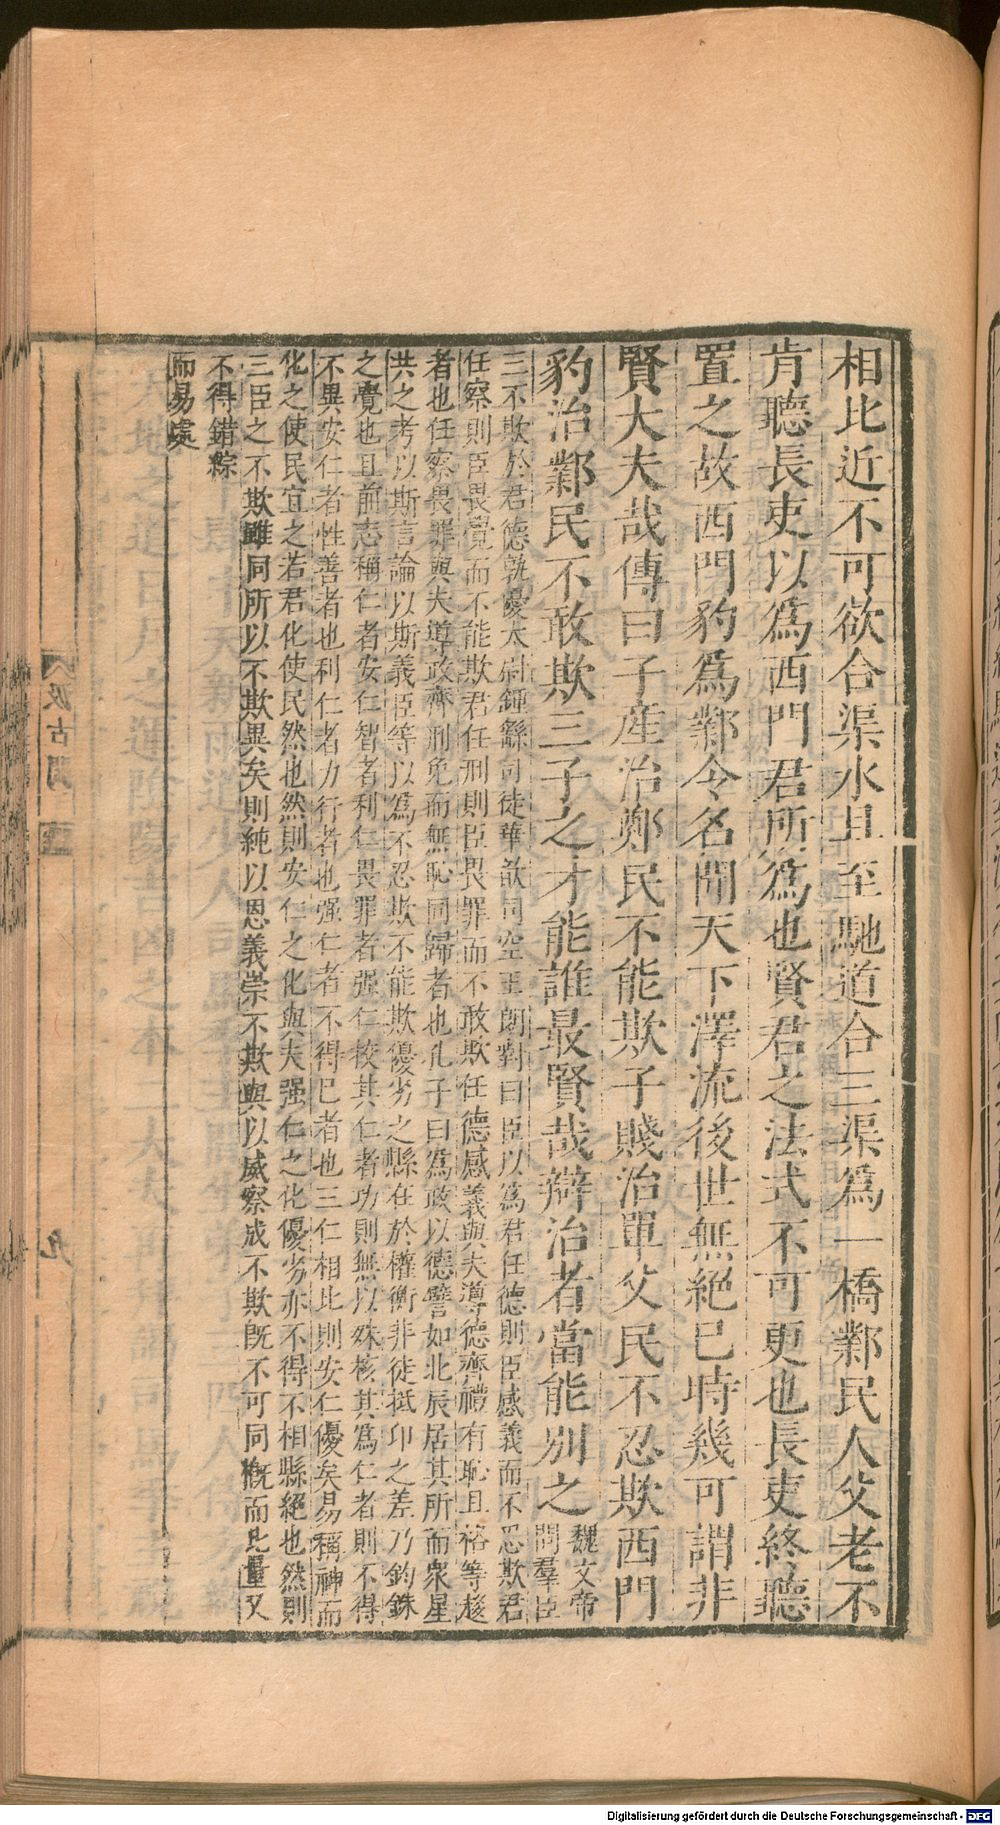 相比近不可欲合渠水且至馳道合三渠爲一橋鄴民人父老不
肯聽長吏以爲西門君所爲也賢君之法式不可更也長吏終聽
置之故西門豹爲鄴令名聞天下澤流後世無絕已時幾可謂非
賢大夫哉傳曰子產治鄭民不能欺子賤治單父民不忍欺西門
豹治鄴民不敢欺三子之才能誰最賢哉辯治者當能別之
魏文帝
問羣臣
三不欺於君德孰優太尉鍾繇司徒華歆司空王朗對曰臣以爲君任德則臣感義而不忍欺君
任察則臣畏覺而不能欺君任刑則臣畏罪而不敢欺任德感義與夫導德齊禮有恥且格等趨
者也任察畏罪與夫導政齊刑免而無恥同歸者也孔子曰爲政以德譬如北辰居其所而衆星
共之考以斯言論以斯義臣等以爲不忍欺不能欺優劣之縣在於權衡非徒抵卬之差乃鈞銖
之覺也且前志稱仁者安仁智者利仁畏罪者强仁校其仁者功則無以殊核其爲仁者則不得
不異安仁者性善者也利仁者力行者也强仁者不得已者也三仁相比則安仁優矣易稱神而
化之使民宜之若君化使民然也然則安仁之化與夫强仁之化優劣亦不得不相縣絕也然則
三臣之不欺雖同所以不欺異矣則純以恩義崇不欺與以威察成不欺旣不可同槪而比量又
不得錯綜
而易處
汲古閣
九
Digitalisierung gefördert durch die Deutsche Forschungsgemeinschaft - DFG